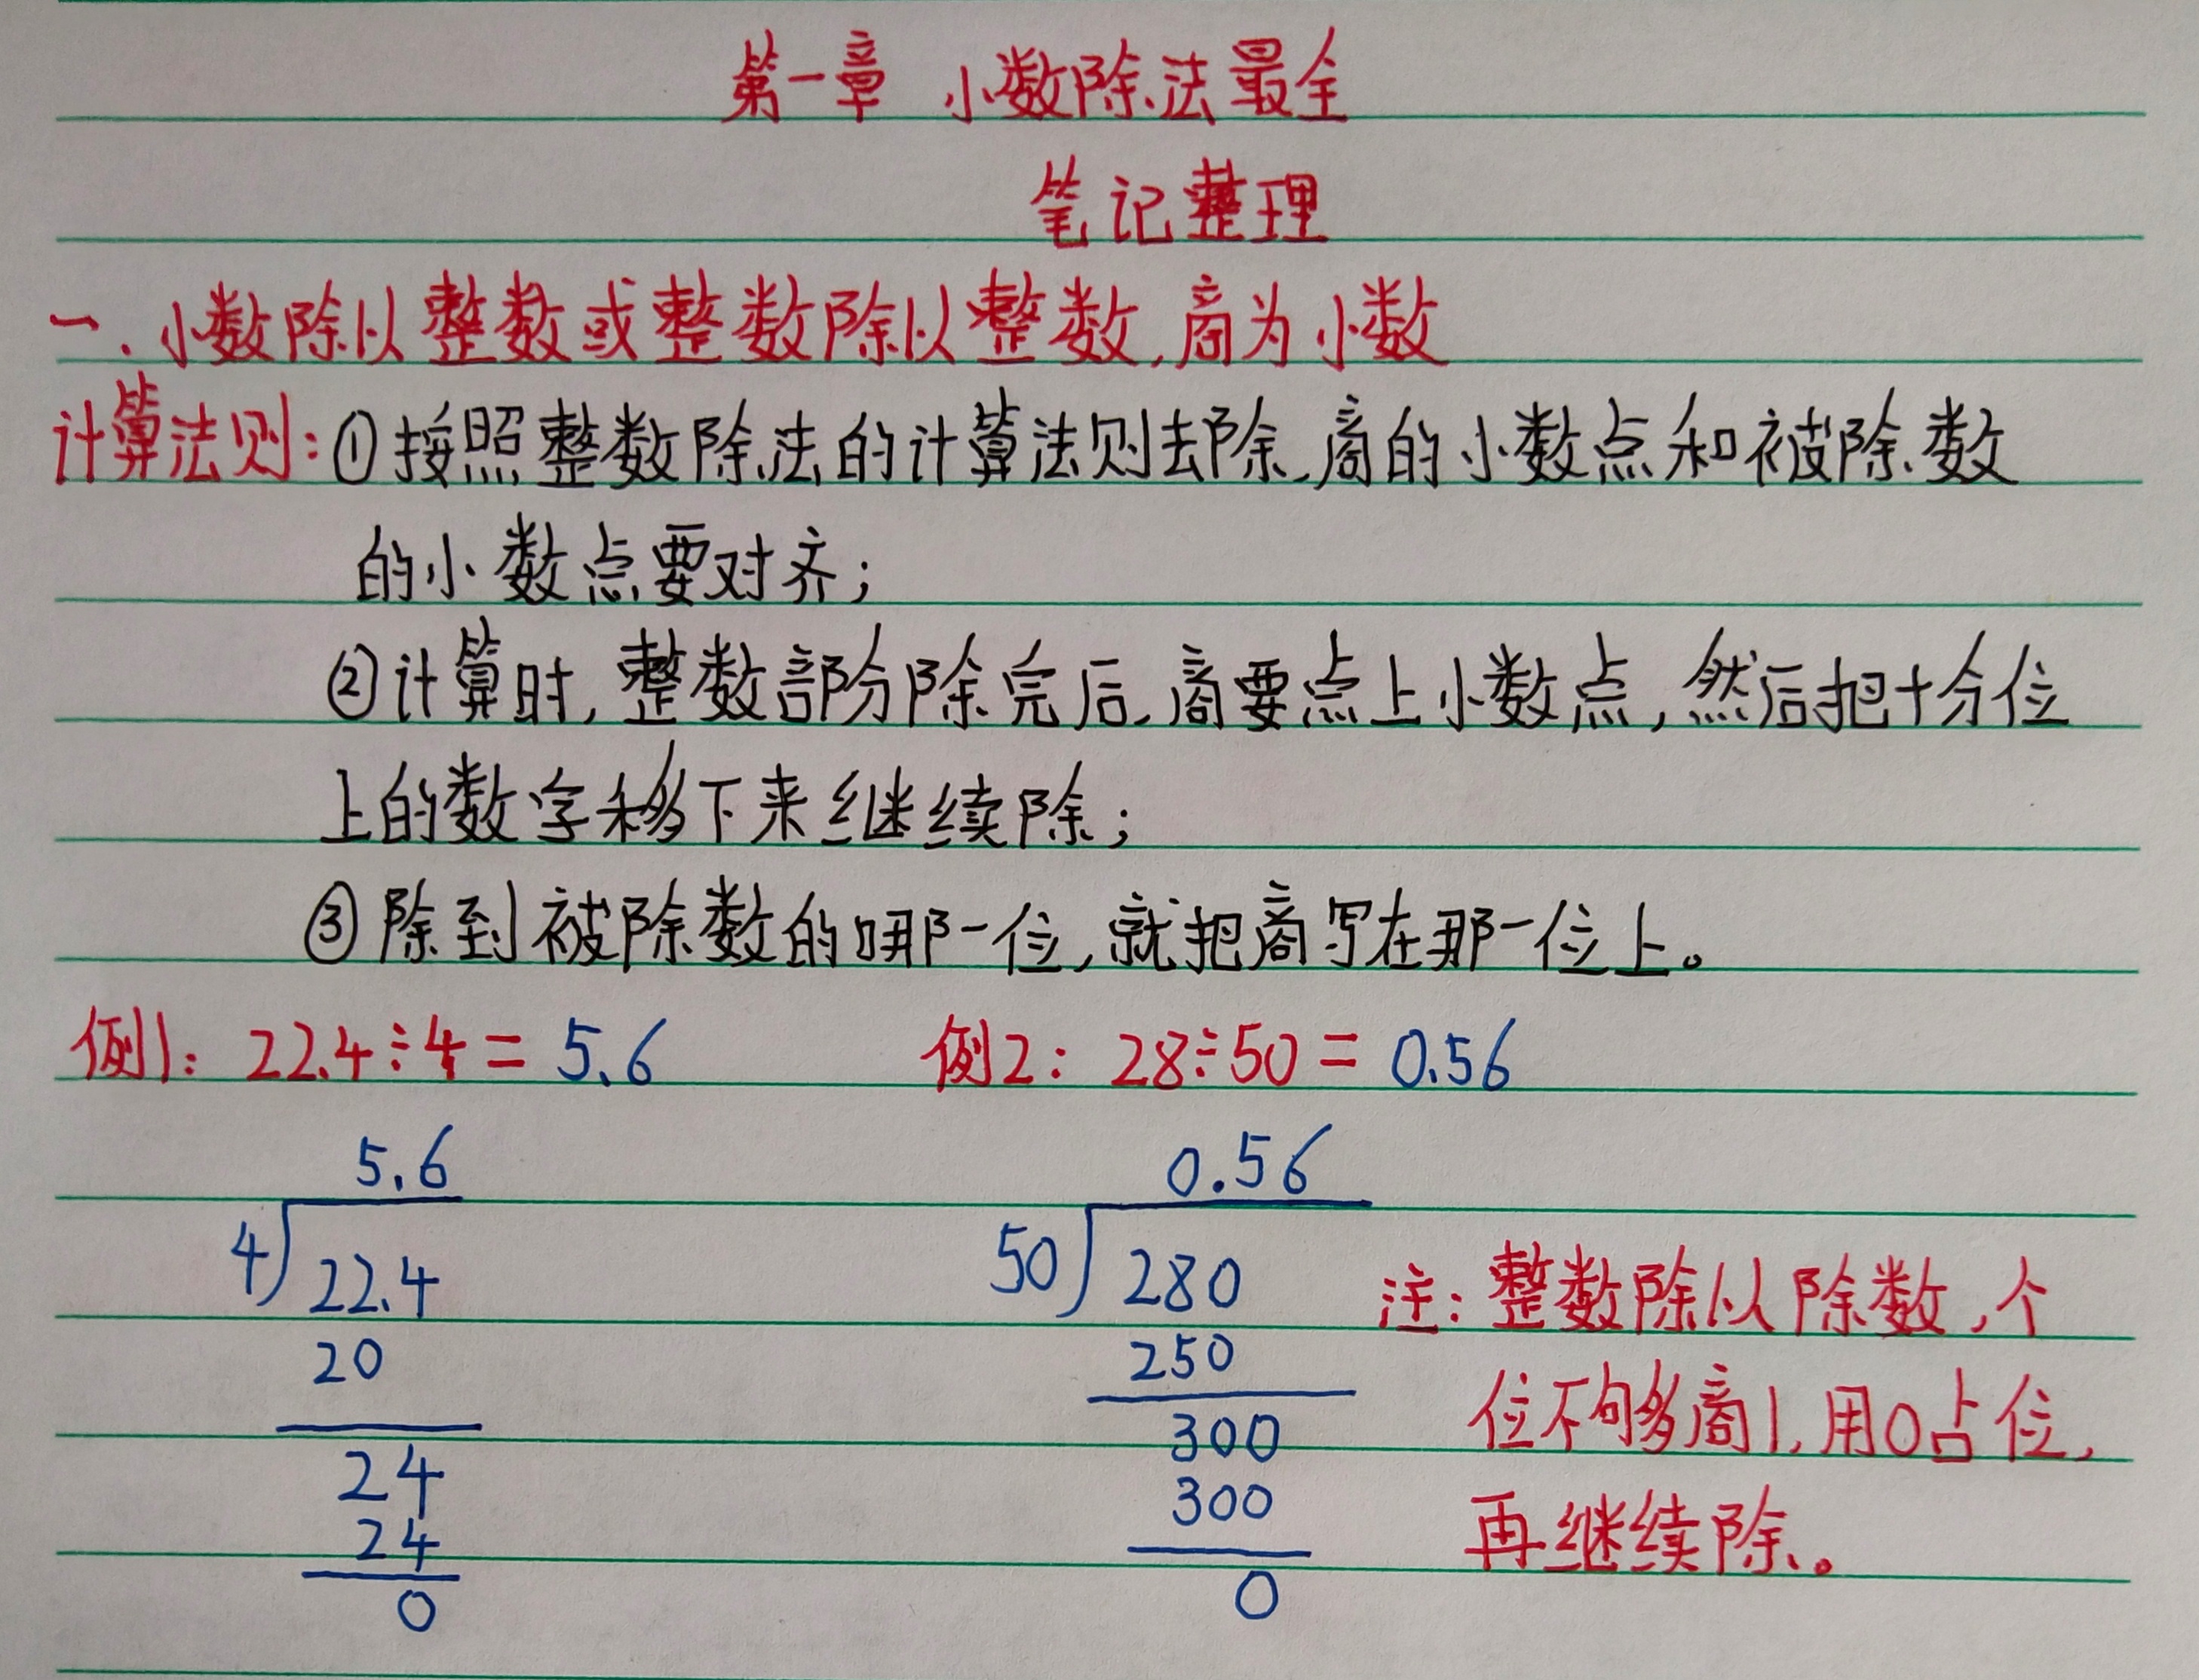 第一章 小数除法最全
笔记整理
一.小数除以整数或整数除以整数,商为小数
计算法则:①按照整数除法的计算法则去除,商的小数点和被除数
的小数点要对齐;
②计算时,整数部分除完后,商要点上小数点,然后把十分位
上的数字移下来继续除;
③除到被除数的哪一位,就把商写在那一位上。
例1: 22.4÷4=5.6
例2: 28÷50=0.56
5.6
4 22.4
20
24
24
0
0.56
50 280
250
300
300
0
注:整数除以除数,个
位不够商1,用0占位,
再继续除。